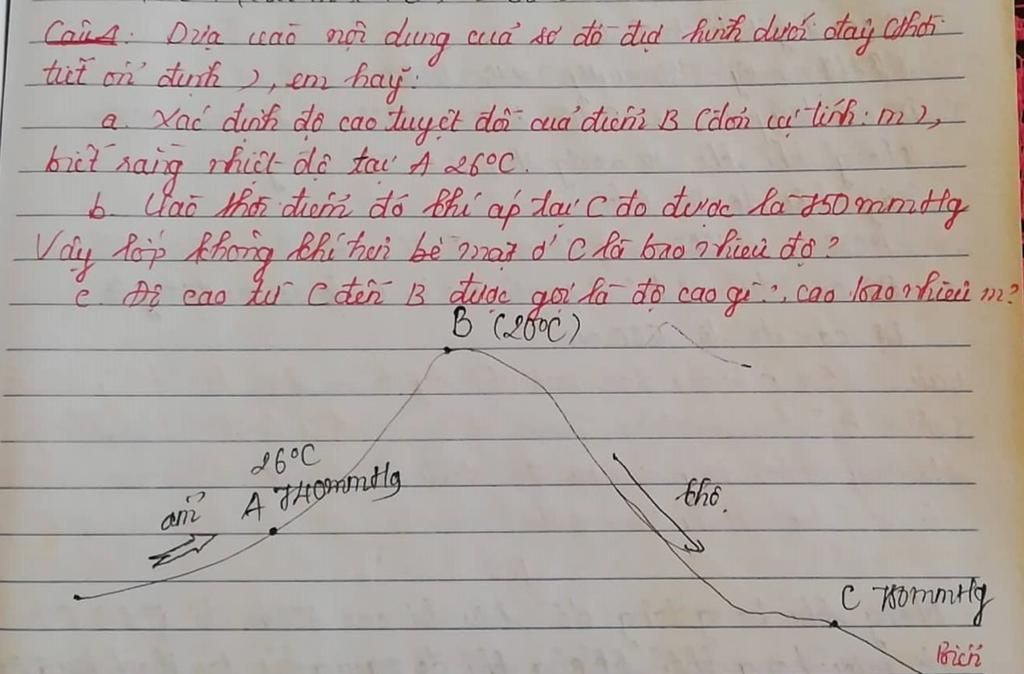 Câu 1: Dựa vào nội dung của sơ đồ dưới hình dưới đây (thời
tiết ổn định), em hãy:
a. Xác định độ cao tuyệt đối của điểm B (đơn vị tính: m),
biết rằng nhiệt độ tại A 26°C.
b. Vào thời điểm đó khí áp tại C đo được là 750mmHg
Vậy lớp không khí trên bề mặt ở C là bao nhiêu độ?
c. Độ cao từ C đến B được gọi là độ cao gì?, cao bao nhiêu m?
B (20°C)
26°C
ẩm A 740mmHg
khô.
C 750mmHg
Biển